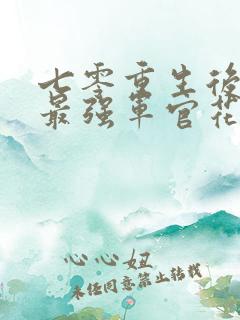 七零重生后
最强军官花
心心妞
未经同意禁止转载